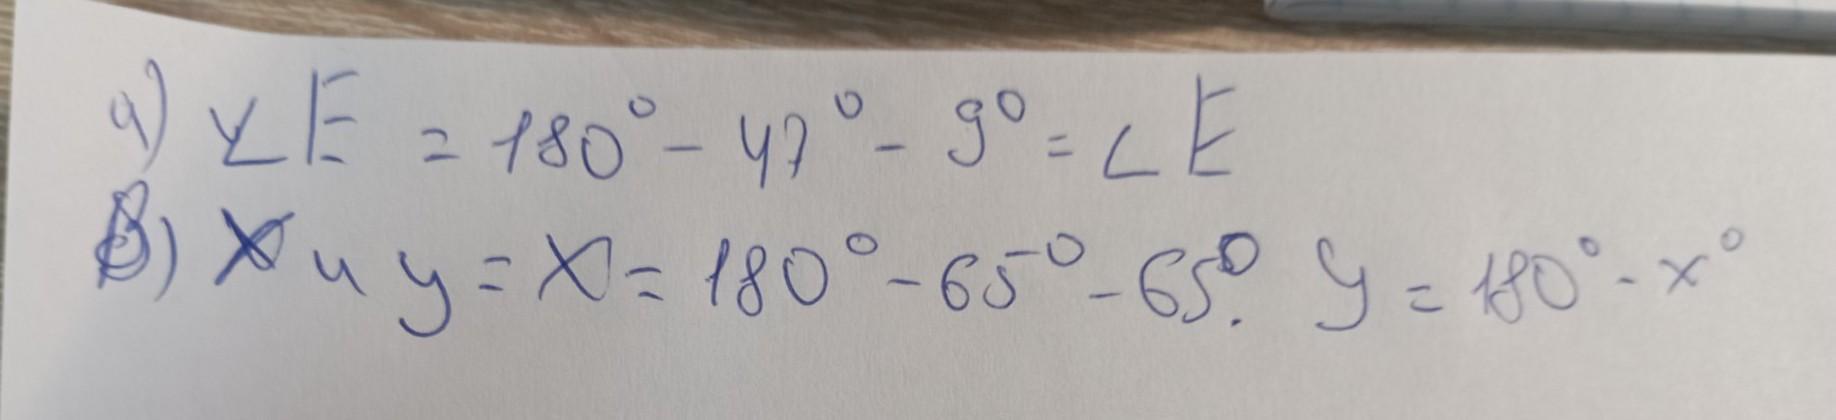 а) ∠E = 180° - 47° - 9° = ∠E
в) x и y = x = 180° - 65° - 65°. y = 180° - x°